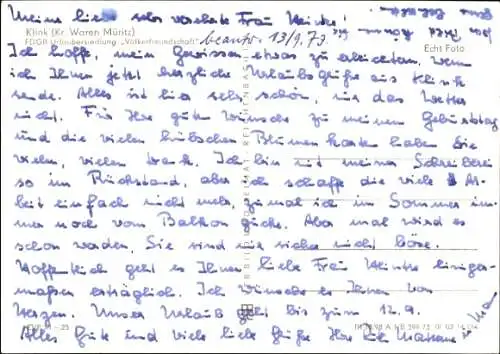 Meine liebe sehr verehrte Frau Winter!
Klink (Kr. Waren Müritz)
FDGB-Urlaubersiedlung „Völkerfreundschaft"
beantw. 13/9.73
Echt Foto
Ich hoffe, mein Gewissen etwas zu erleichtern, wenn
ich Ihnen jetzt herzliche Urlaubsgrüße aus Klink
sende. Alles ist hier sehr schön, nur das Wetter
nicht. Für Ihre guten Wünsche zu meinem Geburtstag
und die vielen hübschen Blumenkarten haben Sie
vielen, vielen Dank. Ich bin mit meiner Schreiberei
so im Rückstand, aber ich schaffe die viele Ar-
beit einfach nicht mehr, zumal ich im Sommer im-
mer noch vom Balkon gucke. Aber mal wird es
schon werden, Sie sind mir sicher nicht böse.
Hoffentlich geht es Ihnen liebe Frau Winter einiger-
maßen erträglich. Ich wünsche es Ihnen von
Herzen. Unser Urlaub geht bis zum 12.9.
Alles Gute und viele liebe Grüße Ihre